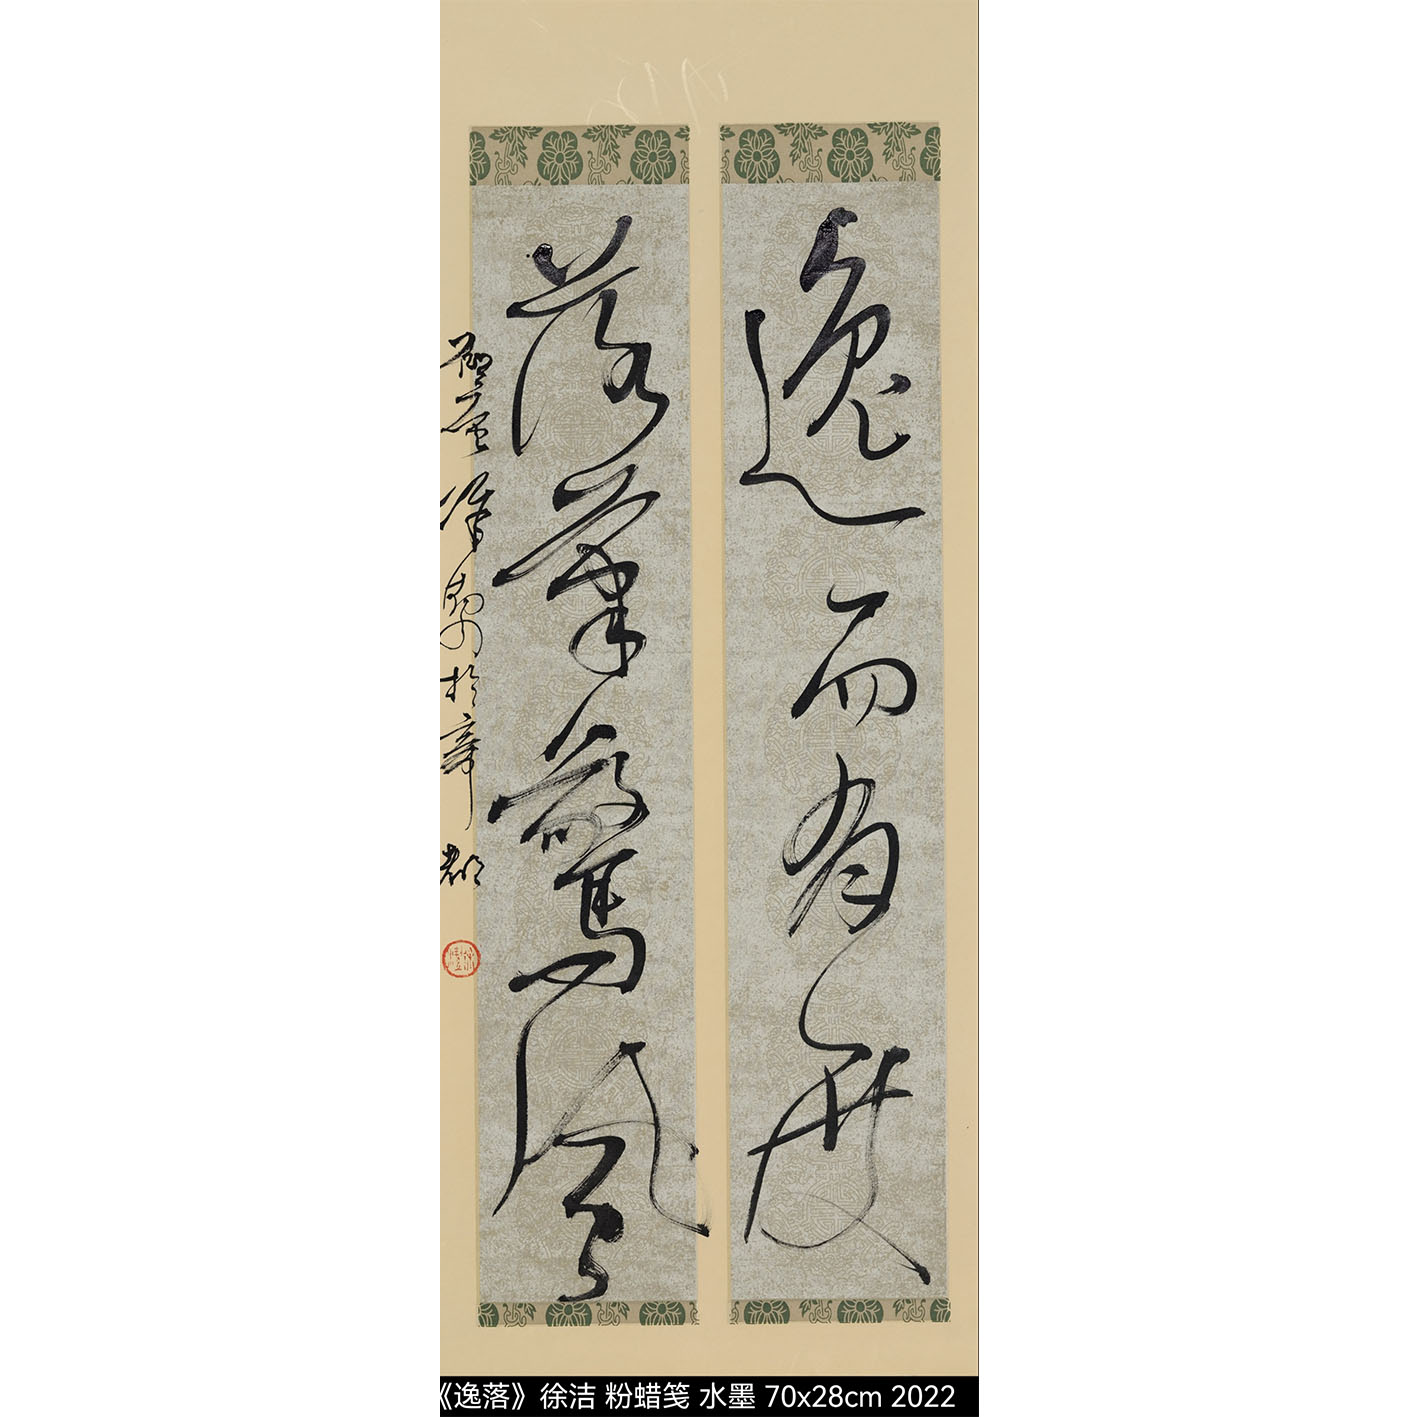 逸而有度
落筆驚風
《逸落》徐洁 粉蜡笺 水墨 70x28cm 2022